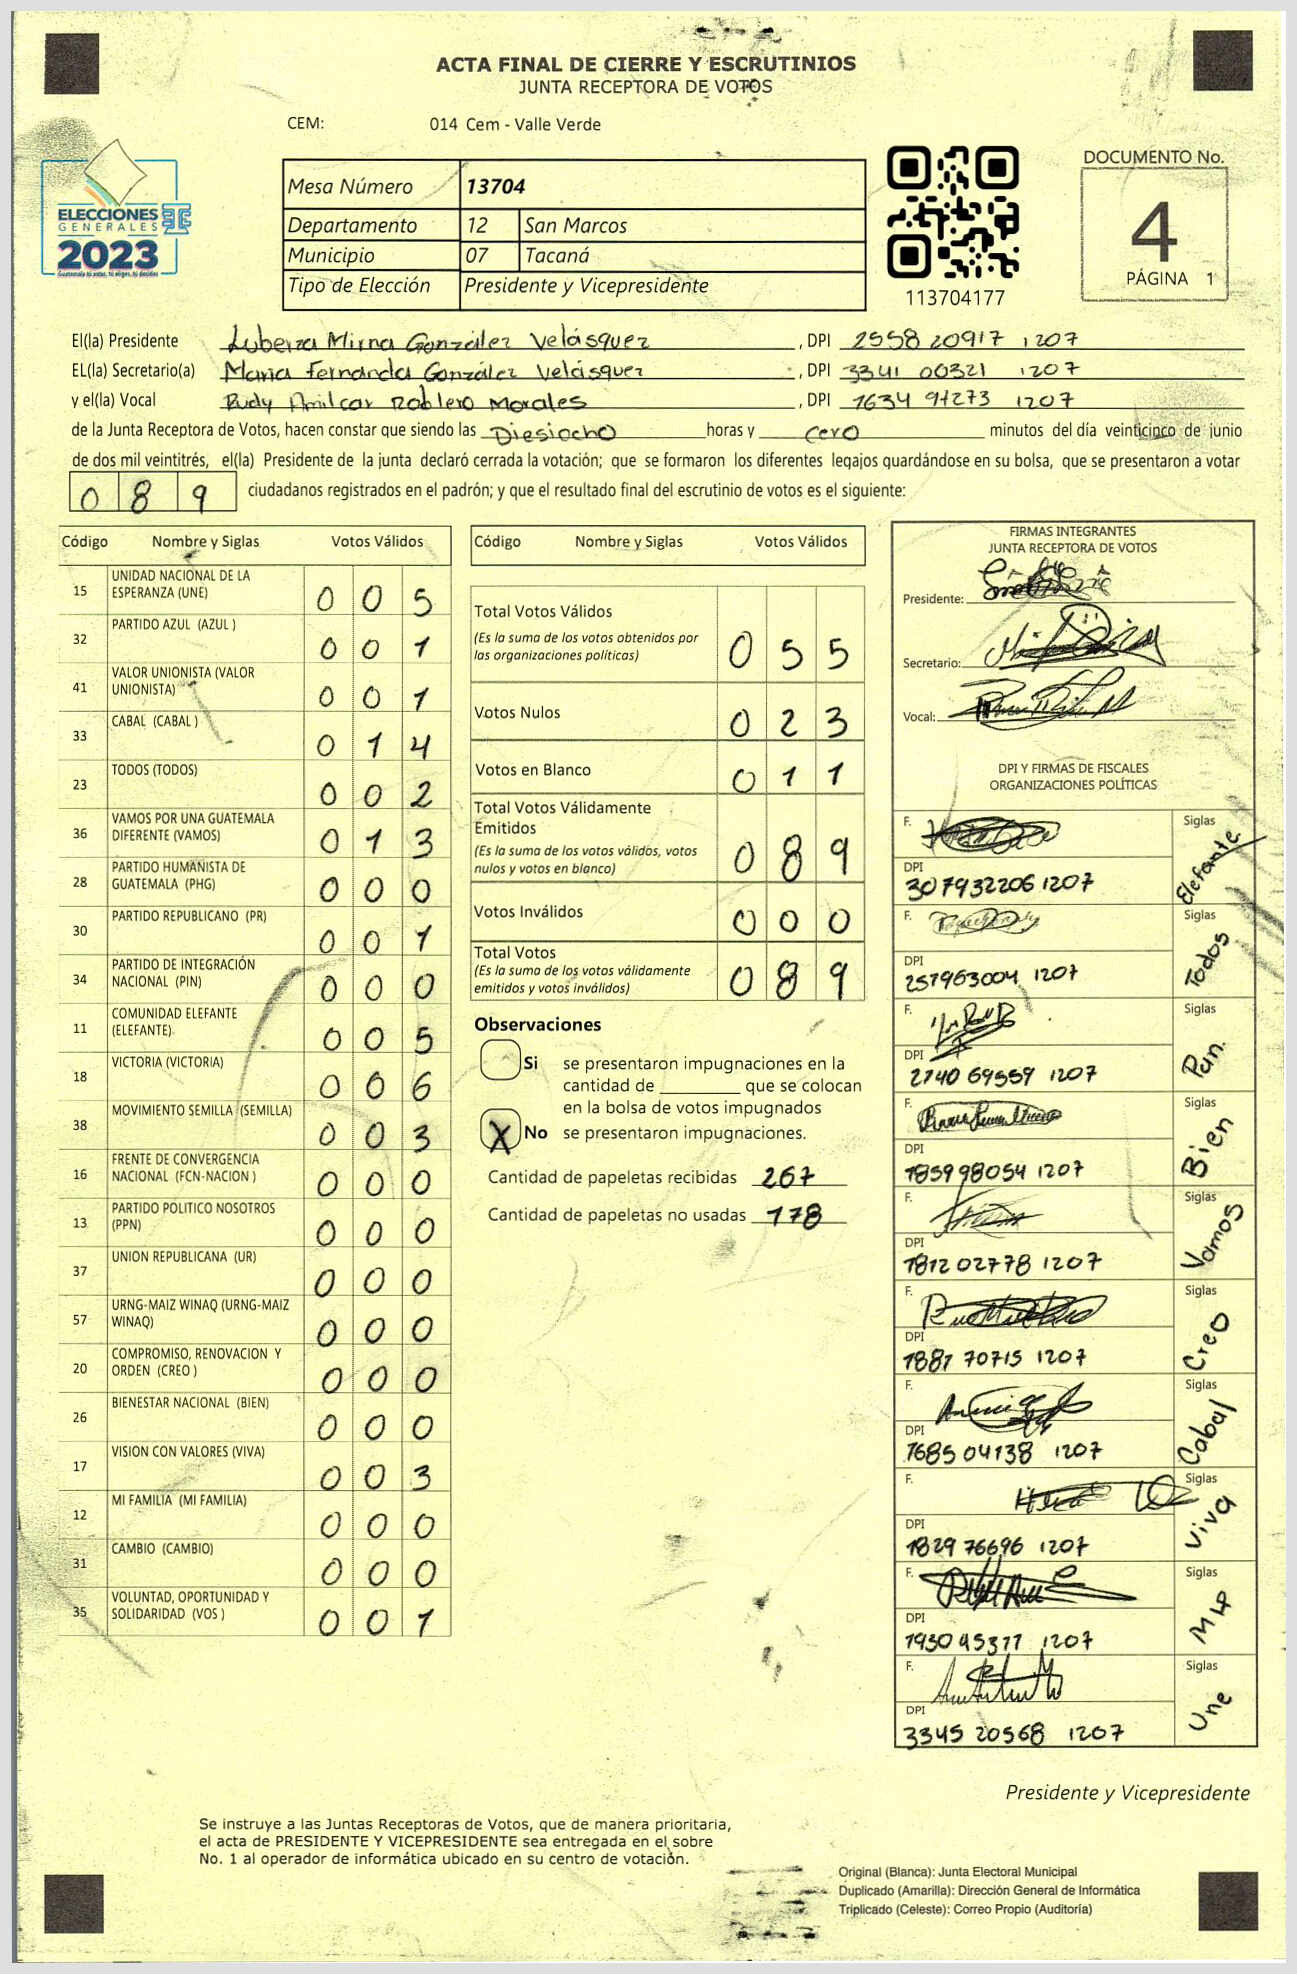 ACTA FINAL DE CIERRE Y ESCRUTINIOS
JUNTA RECEPTORA DE VOTOS
CEM: 014 Cem - Valle Verde
ELECCIONES
GENERALES
2023
Guatemala tú votas, tú eliges, tú decides
Mesa Número 13704
Departamento 12 San Marcos
Municipio 07 Tacaná
Tipo de Elección Presidente y Vicepresidente
113704177
DOCUMENTO No.
4
PÁGINA 1
El(la) Presidente Lubeiza Mirna González Velásquez , DPI 2558 20917 1207
EL(la) Secretario(a) Maria Fernanda González Velásquez , DPI 3341 00321 1207
y el(la) Vocal Rudy Amilcar Roblero Morales , DPI 1634 94273 1207
de la Junta Receptora de Votos, hacen constar que siendo las Diesiocho horas y cero minutos del día veinticinco de junio
de dos mil veintitrés, el(la) Presidente de la junta declaró cerrada la votación; que se formaron los diferentes legajos guardándose en su bolsa, que se presentaron a votar
0 8 9 ciudadanos registrados en el padrón; y que el resultado final del escrutinio de votos es el siguiente:
Código Nombre y Siglas Votos Válidos
15 UNIDAD NACIONAL DE LA ESPERANZA (UNE) 0 0 5
32 PARTIDO AZUL (AZUL ) 0 0 1
41 VALOR UNIONISTA (VALOR UNIONISTA) 0 0 1
33 CABAL (CABAL ) 0 1 4
23 TODOS (TODOS) 0 0 2
36 VAMOS POR UNA GUATEMALA DIFERENTE (VAMOS) 0 1 3
28 PARTIDO HUMANISTA DE GUATEMALA (PHG) 0 0 0
30 PARTIDO REPUBLICANO (PR) 0 0 1
34 PARTIDO DE INTEGRACIÓN NACIONAL (PIN) 0 0 0
11 COMUNIDAD ELEFANTE (ELEFANTE) 0 0 5
18 VICTORIA (VICTORIA) 0 0 6
38 MOVIMIENTO SEMILLA (SEMILLA) 0 0 3
16 FRENTE DE CONVERGENCIA NACIONAL (FCN-NACION ) 0 0 0
13 PARTIDO POLITICO NOSOTROS (PPN) 0 0 0
37 UNION REPUBLICANA (UR) 0 0 0
57 URNG-MAIZ WINAQ (URNG-MAIZ WINAQ) 0 0 0
20 COMPROMISO, RENOVACION Y ORDEN (CREO ) 0 0 0
26 BIENESTAR NACIONAL (BIEN) 0 0 0
17 VISION CON VALORES (VIVA) 0 0 3
12 MI FAMILIA (MI FAMILIA) 0 0 0
31 CAMBIO (CAMBIO) 0 0 0
35 VOLUNTAD, OPORTUNIDAD Y SOLIDARIDAD (VOS ) 0 0 1
Código Nombre y Siglas Votos Válidos
Total Votos Válidos 0 5 5
(Es la suma de los votos obtenidos por
las organizaciones políticas)
Votos Nulos 0 2 3
Votos en Blanco 0 1 1
Total Votos Válidamente
Emitidos 0 8 9
(Es la suma de los votos válidos, votos
nulos y votos en blanco)
Votos Inválidos 0 0 0
Total Votos 0 8 9
(Es la suma de los votos válidamente
emitidos y votos inválidos)
Observaciones
Si se presentaron impugnaciones en la
cantidad de ________ que se colocan
en la bolsa de votos impugnados
X No se presentaron impugnaciones.
Cantidad de papeletas recibidas 267
Cantidad de papeletas no usadas 178
FIRMAS INTEGRANTES
JUNTA RECEPTORA DE VOTOS
Presidente:
Secretario:
Vocal:
DPI Y FIRMAS DE FISCALES
ORGANIZACIONES POLÍTICAS
F. Siglas Elefante
DPI 307932206 1207
F. Siglas Todos
DPI 257963004 1207
F. Siglas Pin.
DPI 2740 69559 1207
F. Siglas Bien
DPI 185998054 1207
F. Siglas Vamos
DPI 1812 02778 1207
F. Siglas Creo
DPI 1881 70715 1207
F. Siglas Cabal
DPI 1685 04138 1207
F. Siglas Viva
DPI 1829 76696 1207
F. Siglas MLP
DPI 1930 45377 1207
F. Siglas Une
DPI 3345 20568 1207
Presidente y Vicepresidente
Se instruye a las Juntas Receptoras de Votos, que de manera prioritaria,
el acta de PRESIDENTE Y VICEPRESIDENTE sea entregada en el sobre
No. 1 al operador de informática ubicado en su centro de votación.
Original (Blanca): Junta Electoral Municipal
Duplicado (Amarilla): Dirección General de Informática
Triplicado (Celeste): Correo Propio (Auditoría)